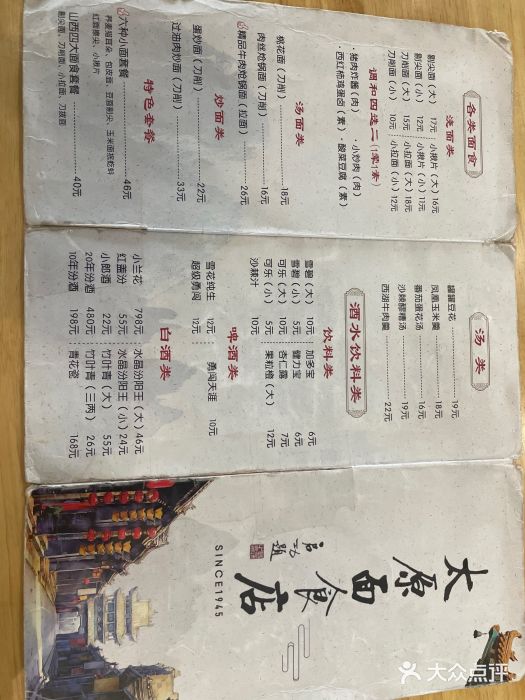 各类面食
浇面类
剔尖面（大） 17元 小揪片（大） 16元
剔尖面（小） 12元 小揪片（小） 11元
刀削面（大） 15元 小拉面（大） 18元
刀削面（小） 10元 小拉面（小） 12元
调和四选二（1荤1素）
·猪肉炸酱（肉） ·小炒肉（肉）
·西红柿鸡蛋卤（素） ·酸菜豆腐（素）
汤面类
桃花面（刀削） 18元
肉丝炝锅面（刀削） 16元
精品牛肉炝锅面（拉面） 26元
炒面类
蛋炒面（刀削） 22元
过油肉炒面（刀削） 33元
特色套餐
六种小面套餐 46元
荞麦猫耳朵、包皮面、豆面剔尖、玉米面搓蚪
红面擦尖、小揪片
山西四大面食套餐 40元
剔尖面、刀削面、小拉面、刀拨面
汤类
罐罐豆花 19元
凤凰玉米羹 18元
番茄蛋花汤 16元
沙棘醪糟汤 19元
西湖牛肉羹 22元
酒水饮料类
饮料类
雪碧（大） 10元 加多宝 6元
雪碧（小） 5元 健力宝 6元
可乐（大） 10元 杏仁露 7元
可乐（小） 5元 果粒橙（大） 12元
沙棘汁 10元
啤酒类
雪花纯生 12元 勇闯天涯 10元
超级勇闯 12元
白酒类
小兰花 798元 水晶汾阳王（大） 46元
红盖汾 55元 水晶汾阳王（小） 24元
小郎酒 22元 竹叶青（大） 55元
20年汾酒 480元 竹叶青（三两） 26元
10年汾酒 198元 青花瓷 168元
太原面食店
SINCE1945
大众点评